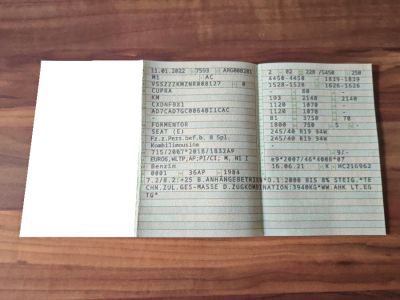 11.01.2022 7593 ARG000281
M1 AC
0
CUPRA
KM
FORMENTOR
SEAT (E)
Fz.z.Pers.bef.b. 8 Spl.
Kombilimousine
715/2007*2018/1832A9
EURO6,WLTP,AP;PI/CI; M, N1 I
Benzin
0001 36AP 1984
2 02 228 /5450 250
4450-4450 1839-1839
1528-1528 1626-1626
- 80
193 2140 2140
1120 1070
1120 1070
81 3750 70
1800 750 5 -
245/40 R19 94W
245/40 R19 94W
- 9/-
e9*2007/46*4008*07
16.06.21 K HC216962
7.2/8.2:+25 B.ANHÄNGEBETRIEB*O.1:2000 BIS 8% STEIG.*TE
CHN.ZUL.GES-MASSE D.ZUGKOMBINATION:3940KG*WW.AHK LT.EG
TG*